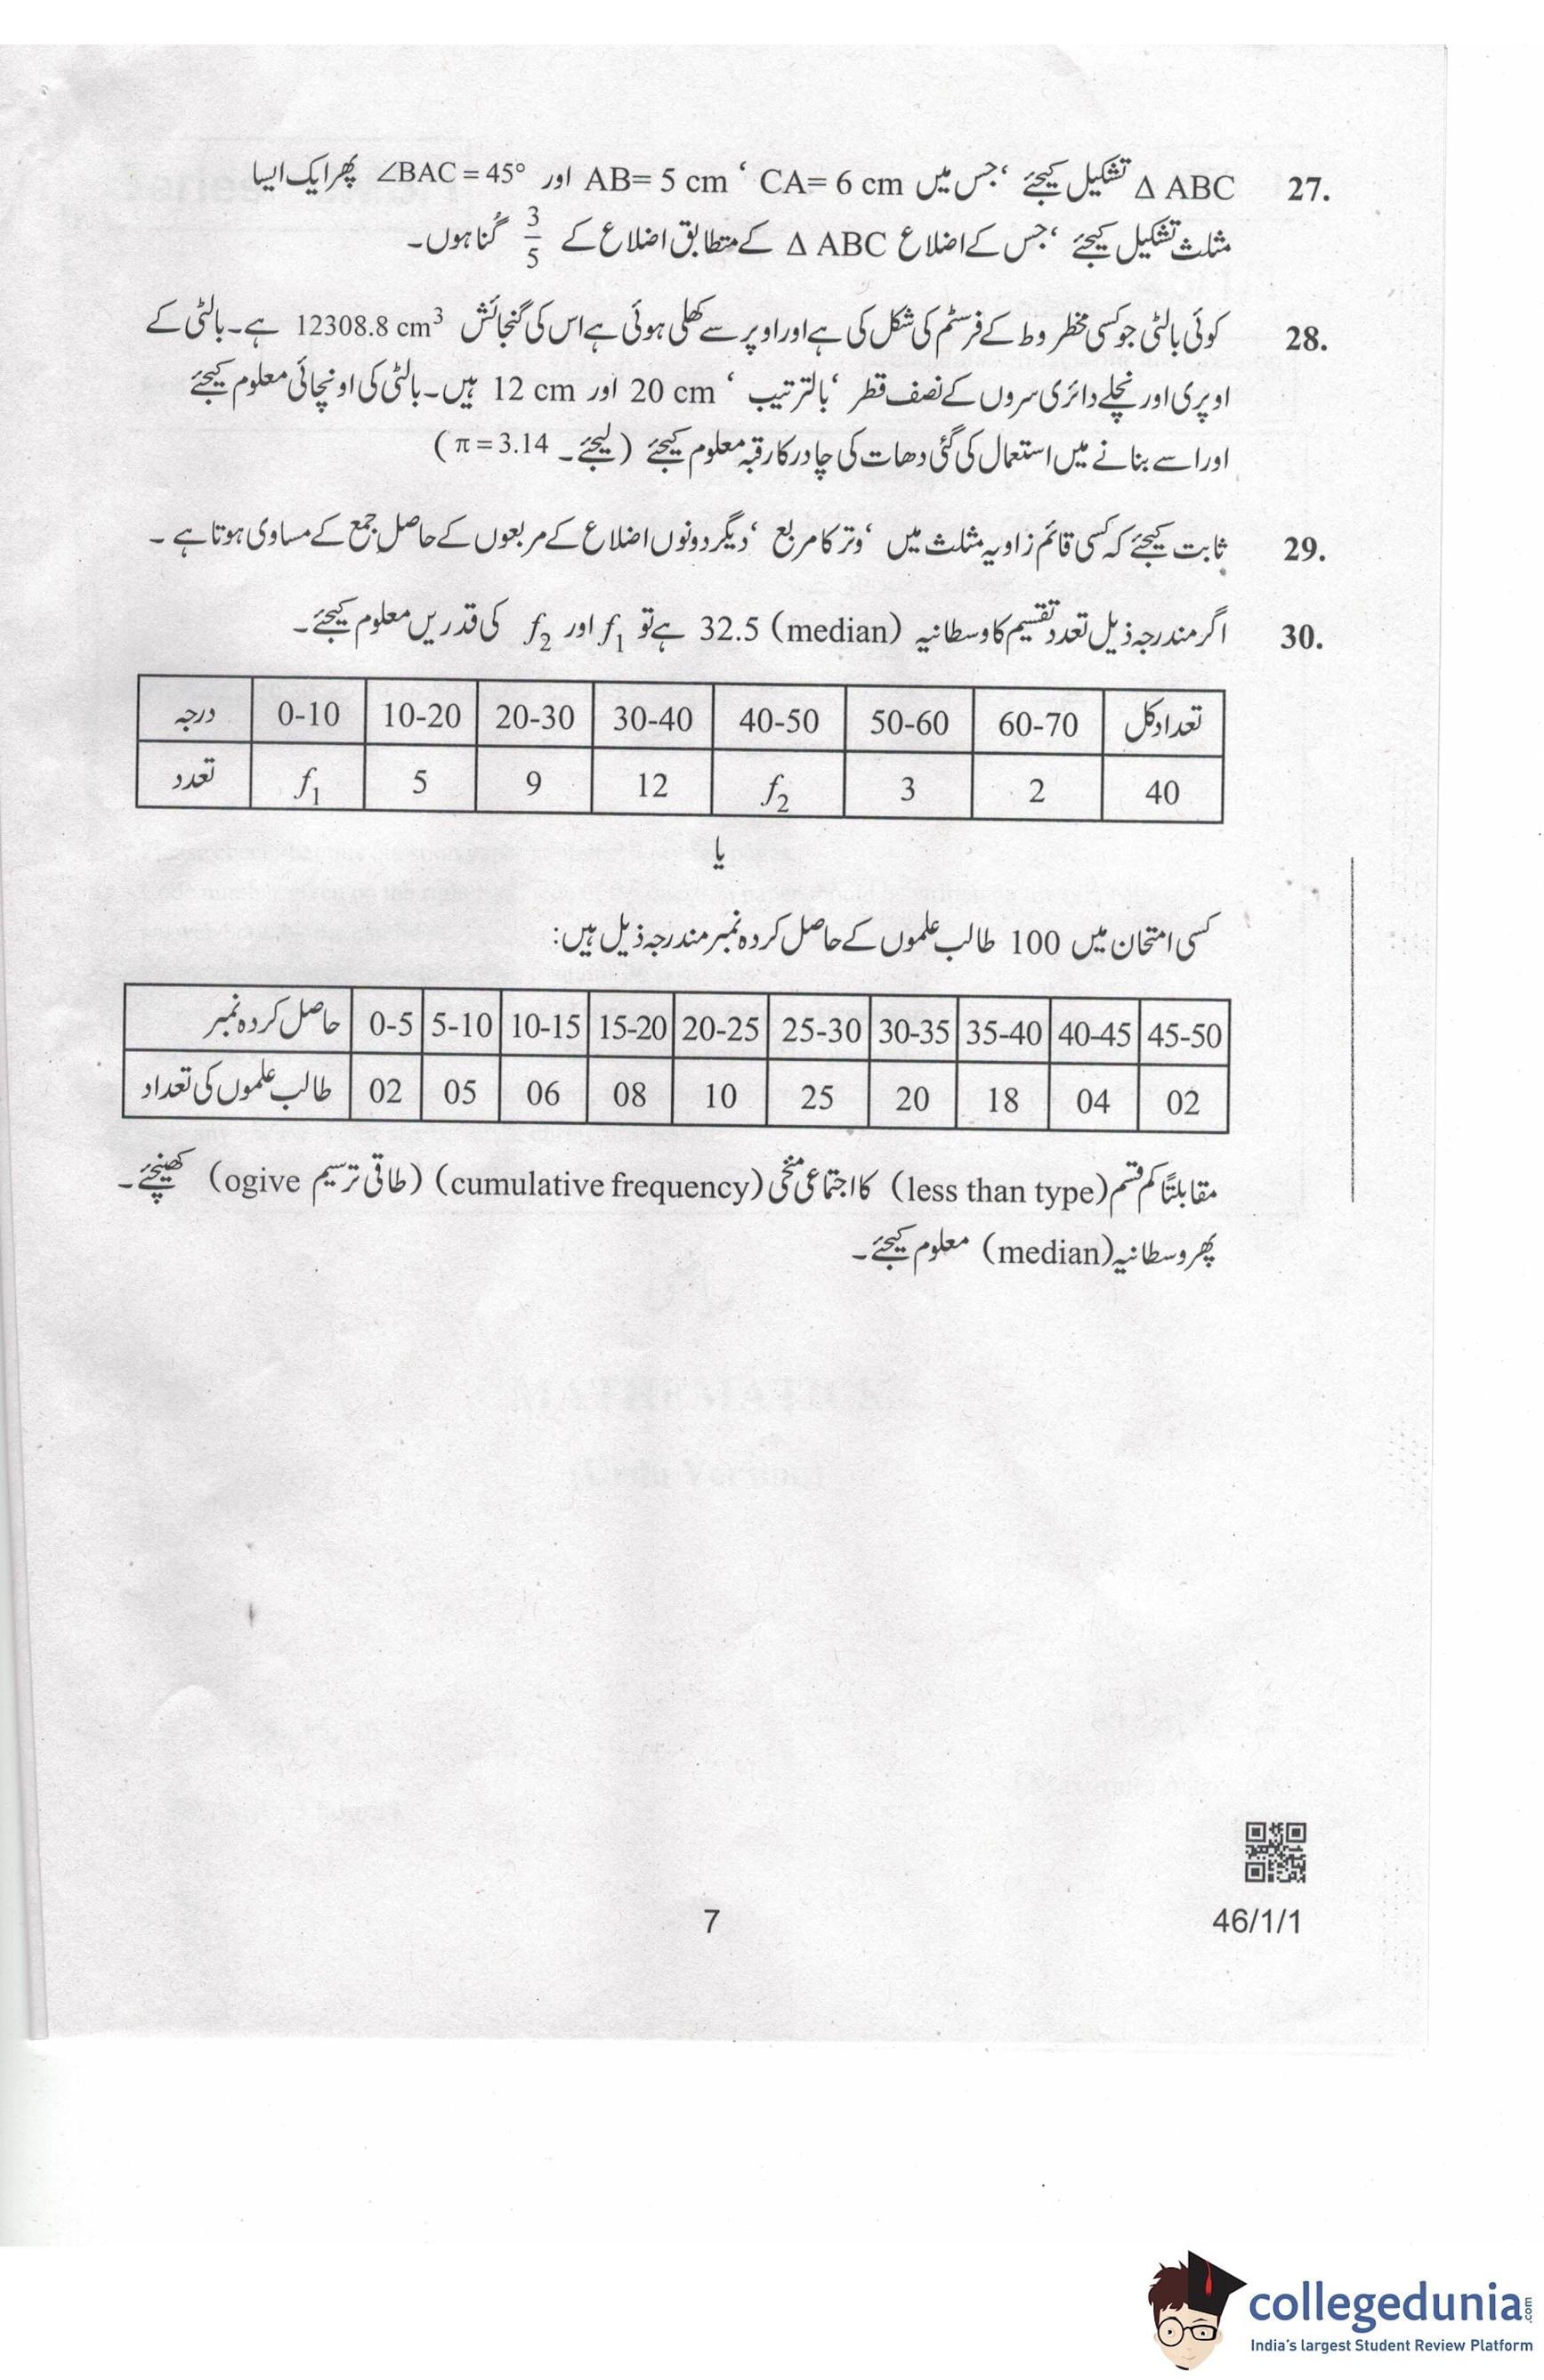 27. Δ ABC تشکیل کیجئے ‘جس میں AB= 5 cm ‘ CA= 6 cm اور ∠BAC = 45° پھر ایک ایسا
مثلث تشکیل کیجئے ‘جس کے اضلاع Δ ABC کے متطابق اضلاع کے 3/5 گنا ہوں۔
28. کوئی بالٹی جو کسی مخظر وط کے فرسٹم کی شکل کی ہے اور اوپر سے کھلی ہوئی ہے اس کی گنجائش 12308.8 cm³ ہے۔ بالٹی کے
اوپری اور نچلے دائری سروں کے نصف قطر ‘بالترتیب ‘ 20 cm اور 12 cm ہیں۔ بالٹی کی اونچائی معلوم کیجئے
اور اسے بنانے میں استعمال کی گئی دھات کی چادر کا رقبہ معلوم کیجئے (لیجئے۔ π = 3.14)
29. ثابت کیجئے کہ کسی قائم زاویہ مثلث میں ‘وتر کا مربع ‘دیگر دونوں اضلاع کے مربعوں کے حاصل جمع کے مساوی ہوتا ہے ۔
30. اگر مندرجہ ذیل تعدد تقسیم کا وسطانیہ (median) 32.5 ہے تو f₁ اور f₂ کی قدریں معلوم کیجئے۔
درجہ 0-10 10-20 20-30 30-40 40-50 50-60 60-70 تعداد کل
تعدد f₁ 5 9 12 f₂ 3 2 40
یا
کسی امتحان میں 100 طالب علموں کے حاصل کردہ نمبر مندرجہ ذیل ہیں:
حاصل کردہ نمبر 0-5 5-10 10-15 15-20 20-25 25-30 30-35 35-40 40-45 45-50
طالب علموں کی تعداد 02 05 06 08 10 25 20 18 04 02
مقابلتاً کم قسم (less than type) کا اجتماعی منحنی (cumulative frequency) (طاقی ترسیم ogive) کھینچئے۔
پھر وسطانیہ (median) معلوم کیجئے۔
7
46/1/1
collegedunia.com
India's largest Student Review Platform